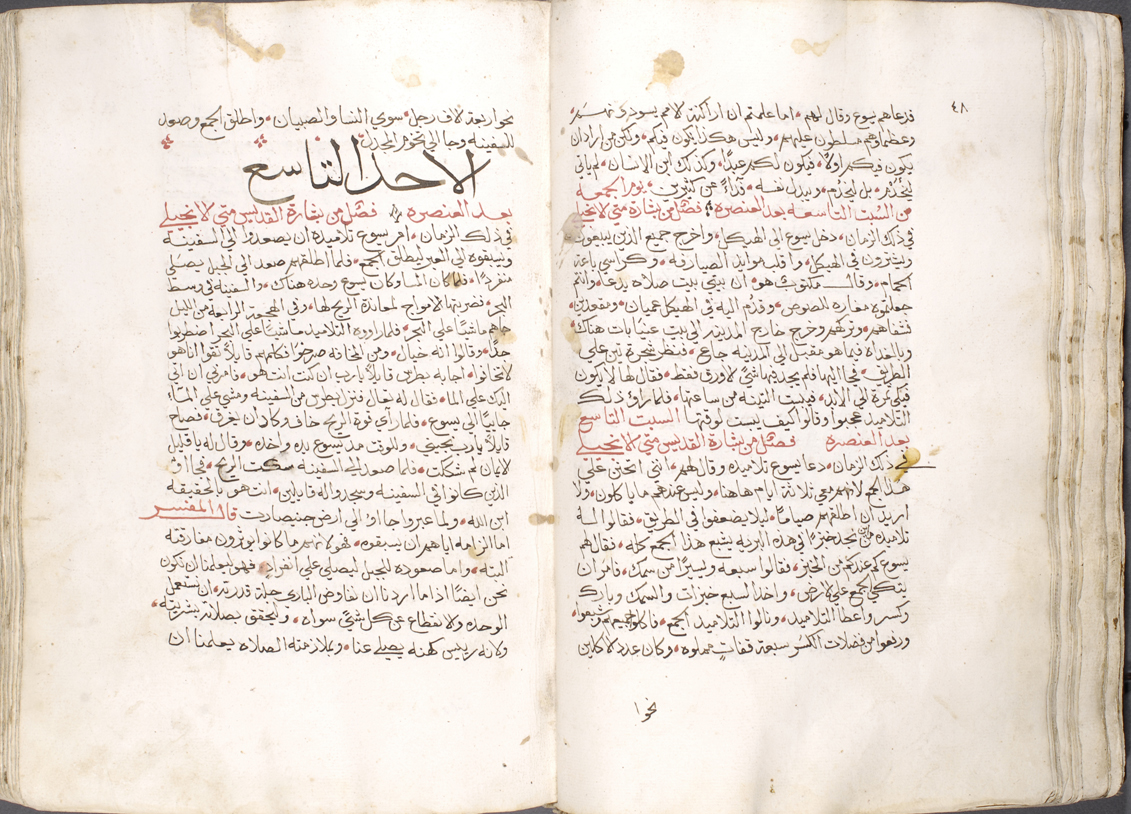 ٤٨
فدعاهم يسوع وقال لهم اما علمتم ان اراكنة الامم يسودونهم
وعظماوهم مسلطون عليهم وليس هكذا يكون فيكم ولكن من اراد ان
يكون فيكم اولا فيكون لكم عبدا وكذلك ابن الانسان لم ياتي
ليخدم بل ليخدم ويبدل نفسه فداء عن كثيرين يوم الجمعه
من السبت التاسعه بعد العنصره فصل من بشارة متي الانجيلي
في ذلك الزمان دخل يسوع الى الهيكل واخرج جميع الدين يبيعون
ويشترون في الهيكل واقلب موايد الصيارفه وكراسي باعة
الحمام وقال مكتوب هو ان بيتي بيت صلاه يدعا وانتم
جعلتموه مغاره للصوص وقدم اليه في الهيكل عميان ومقعدين
فشفاهم وتركهم وخرج خارج المدينه الى بيت عنيا بات هناك
وبالغداه فيما هو مقبل الى المدينه جاع فنظر شجرة تين علي
الطريق فجا اليها فلم يجد فيها شي الا ورق فقط فقال لها لا يكون
فيكي ثمرة الى الابد فيبست التينه من ساعتها فلما راو ذلك
التلاميد عجبوا وقالوا كيف يبست لوقتها السبت التاسع
بعد العنصره فصل من بشارة القديس متي الانجيلي
في ذلك الزمان دعا يسوع تلاميده وقال لهم انني اتحنن علي
هذا الجمع لانهم معي تلاثة ايام هاهنا وليس عندهم ما ياكلون ولا
اريد ان اطلقهم صياما ليلا يضعفوا في الطريق فقالوا له
تلاميده من اين نجد خبزا في هذه البريه يشبع هذا الجمع كله فقال لهم
يسوع كم عندكم من الخبز فقالوا سبعه ويسيرا من سمك فامر ان
يتكي الجمع علي الارض واخد السبع خبزات والسمك وبارك
وكسر واعطا التلاميد وناولوا التلاميد الجمع فاكلوا جميعهم وشبعوا
ورفعوا من فضلات الكسر سبعة قفات مملوه وكان عدد الاكلين
نحوا
نحوا ربعة الاف رجل سوي النسا والصبيان واطلق الجمع وصعد
للسفينه وجا الي تخوم المجدل
الاحد التاسع
بعد العنصره فصل من بشارة القديس متي الانجيلي
في ذلك الزمان امر يسوع تلاميده ان يصعدوا الي السفينه
ويسبقوه الى العبر ليطلق الجمع فلما اطلقهم صعد الي الجبل يصلي
منفردا فلما كان المسا وكان يسوع وحده هناك والسفينه في وسط
البحر تضربها الامواج لمعاندة الريح لها وفي الهجعة الرابعة من الليل
جاهم ماشيا علي البحر فلما راووه التلاميد ماشيا علي البحر اضطربوا
جدا وقالوا انه خيال ومن المخافه صرخوا فكلمهم قايلا تقوا انا هو
لا تخافوا اجابه بطرس قايلا يارب ان كنت انت هو فامرني ان اتي
اليك علي الما فقال له تعال فنزل بطرس من السفينه ومشي علي الماء
جاييا الي يسوع فلما راي قوة الريح خاف وكاد ان يغرق فصاح
قايلا يارب نجيني وللوقت مد يسوع يده واخده وقال له يا قليل
الايمان لم شككت فلما صعد الى السفينه سكنت الريح فجااو
الذين كانوا في السفينه وسجدوا له قايلين انت هو بالحقيقه
ابن الله ولما عبروا جااو الي ارض جنيصارت قال المفسر
اما الزامه اياهم ان يسبقوه فهو لانهم ما كانوا يوثرون مفارقته
البته واما صعوده للجبل ليصلي علي انفراد فهو يعلمنا ان نكون
نحن ايضا اذا ما اردنا ان نفاوض الباري جلت قدرته ان نستعمل
الوحده والانقطاع عن كل شي سواه وليحقق بصلاته بشريته
ولانه رييس كهنه يصلي عنا وبملازمته الصلاه يعلمنا ان